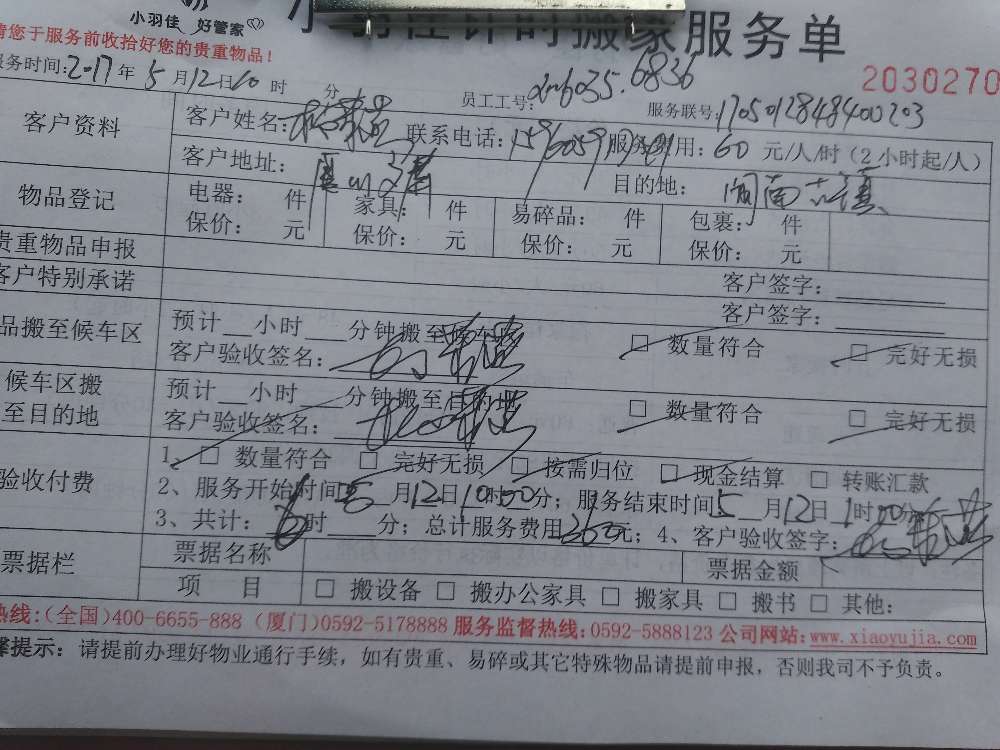 小羽佳 好管家
小羽佳计时搬家服务单
请您于服务前收拾好您的贵重物品!
服务时间:2017年5月12日10时 分 员工工号: 服务联号:1705012848400203
2030270
客户资料 客户姓名: 联系电话: 服务费用:60元/人/时(2小时起/人)
客户地址: 目的地: 闽南古镇
物品登记 电器: 件 家具: 件 易碎品: 件 包裹: 件
保价: 元 保价: 元 保价: 元 保价: 元
贵重物品申报 客户签字:
客户特别承诺 客户签字:
品搬至候车区 预计__小时___分钟搬至候车区 □ 数量符合 □ 完好无损
客户验收签名:
候车区搬至目的地 预计__小时___分钟搬至目的地 □ 数量符合 □ 完好无损
客户验收签名:
验收付费 1、□ 数量符合 □ 完好无损 □ 按需归位 □ 现金结算 □ 转账汇款
2、服务开始时间5月12日10时00分;服务结束时间5月12日1时00分
3、共计:6时___分;总计服务费用360元;4、客户验收签字:
票据栏 票据名称 票据金额
项 目 □ 搬设备 □ 搬办公家具 □ 搬家具 □ 搬书 □ 其他:
热线:(全国)400-6655-888 (厦门)0592-5178888 服务监督热线:0592-5888123 公司网站:www.xiaoyujia.com
馨提示:请提前办理好物业通行手续,如有贵重、易碎或其它特殊物品请提前申报,否则我司不予负责。